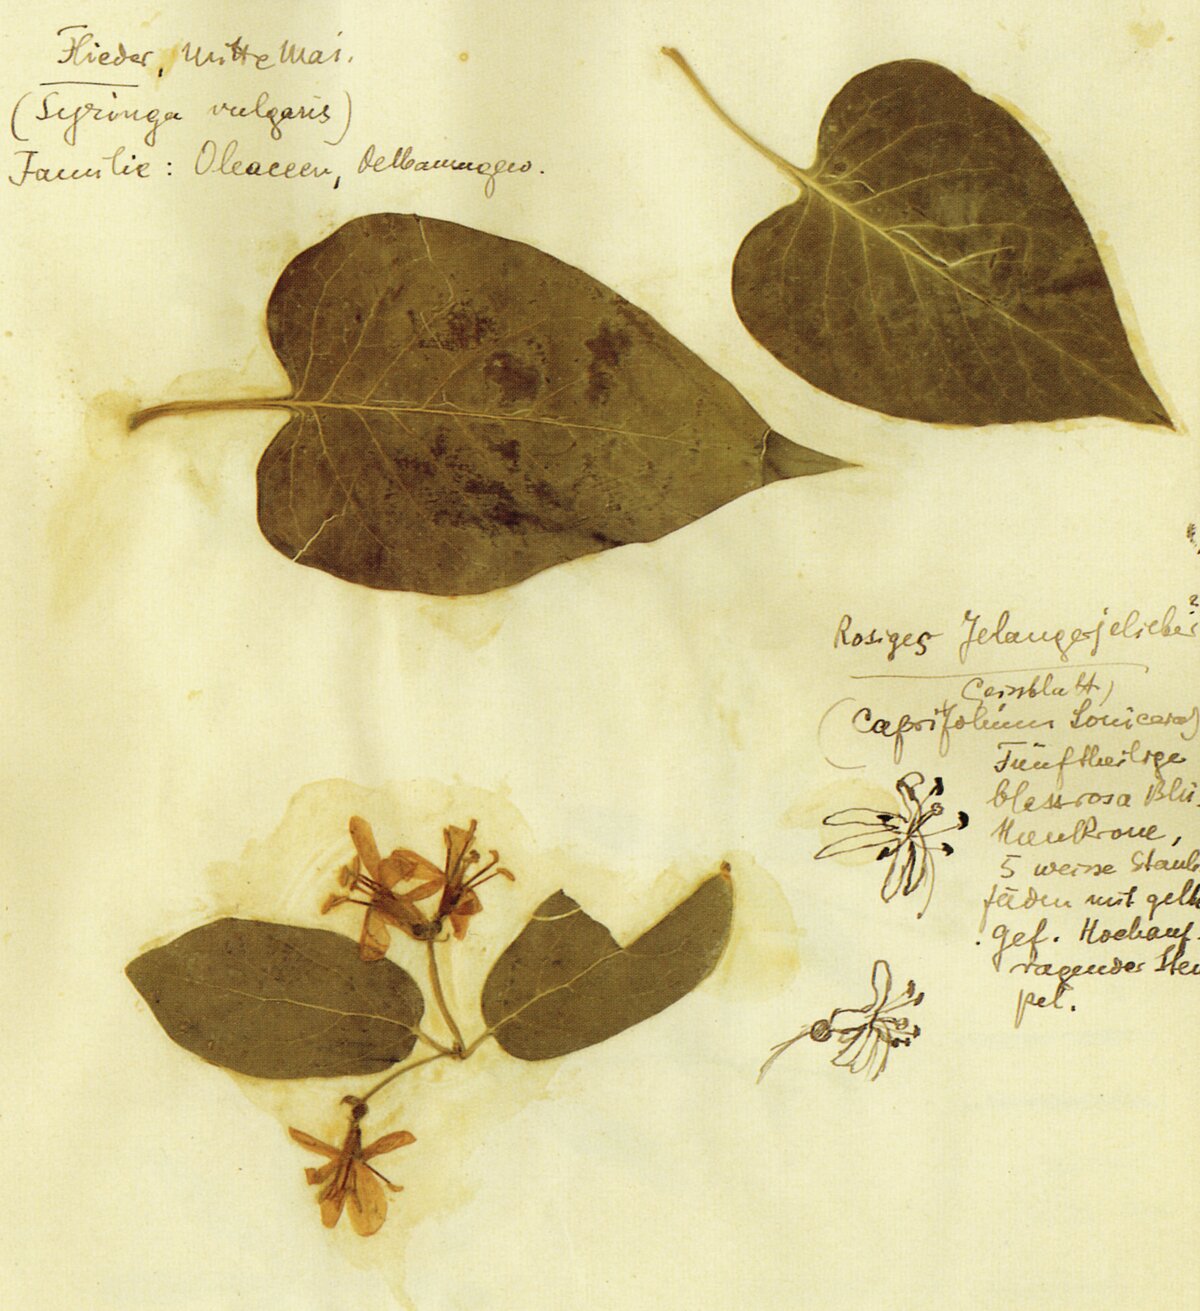 Flieder, Mitte Mai.
(Syringa vulgaris)
Familie: Oleaceen, Oelbaumgew.
Rosiges Jelängerjelieber
Geissblatt)
(Caprifolium Lonicera)
Fünftheilige
blassrosa Blü-
thenkrone,
5 weisse Staub
fäden mit gelb
gef. Hochauf-
ragender Stem
pel.